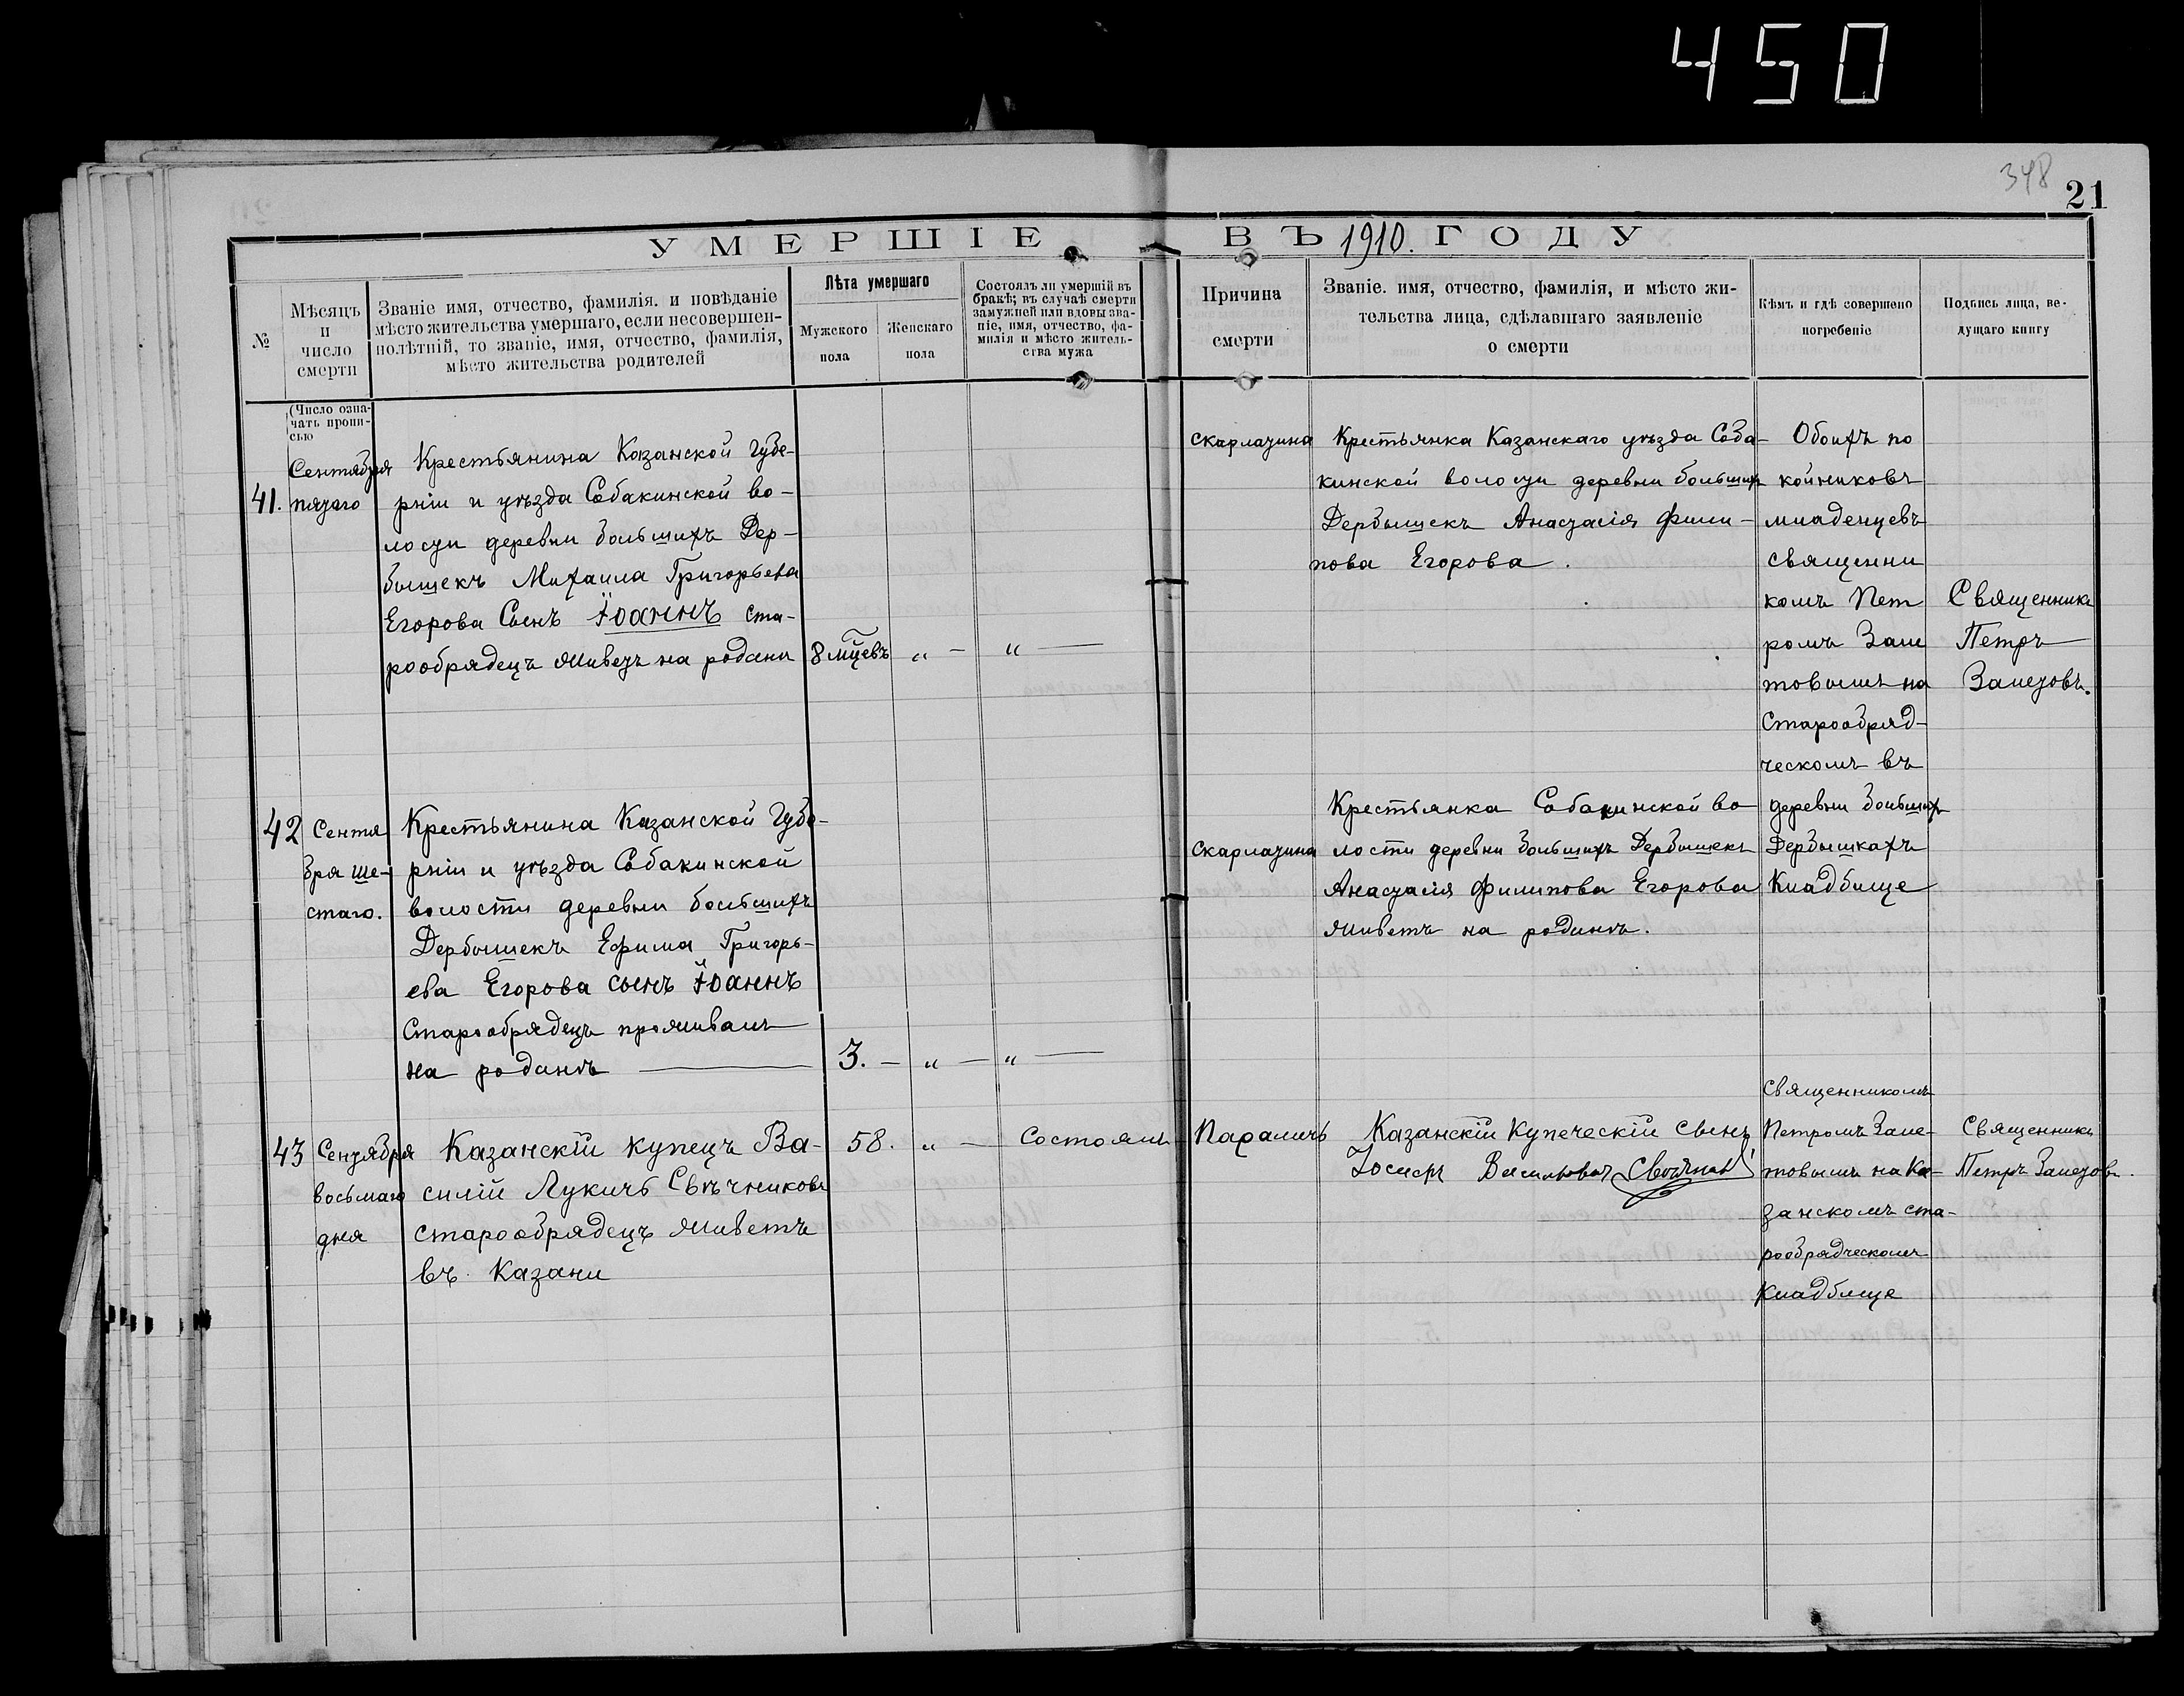 450
348
21
УМЕРШІЕ ВЪ 1910. ГОДУ
№
Мѣсяцъ
и
число
смерти
Званіе имя, отчество, фамилія. и повѣданіе
мѣсто жительства умершаго, если несовершен-
нолѣтній, то званіе, имя, отчество, фамилія,
мѣсто жительства родителей
Лѣта умершаго
Мужского
пола
Женскаго
пола
Состоялъ ли умершій въ
бракѣ; въ случаѣ смерти
замужней или вдовы зва-
ніе, имя, отчество, фа-
милія и мѣсто житель-
ства мужа
Причина
смерти
Званіе. имя, отчество, фамилія, и мѣсто жи-
тельства лица, сдѣлавшаго заявленіе
о смерти
Кѣмъ и гдѣ совершено
погребеніе
Подпись лица, ве-
дущаго книгу
(Число озна-
чать пропи-
сью
41.
Сентября
пятаго
Крестьянина Казанской Губе-
рніи и уѣзда Собакинской во-
лости деревни большихъ Дер-
бышекъ Михаила Григорьева
Егорова Сынъ Іоаннъ ста-
рообрядецъ живетъ на родини
8 мцевъ
„ —
„ —
Скарлатина
Крестьянка Казанскаго уѣзда Соба-
кинской волости деревни большихъ
Дербышекъ Анастасія Фили-
пова Егорова.
Обоихъ по
койниковъ
младенцевъ
священни
комъ Пет
ромъ Зале
товымъ на
Старообряд-
ческомъ въ
деревни большихъ
Дербышкахъ
Кладбище
Священникъ
Петръ
Залетовъ.
42
Сентя
бря ше-
стаго.
Крестьянина Казанской Губе-
рніи и уѣзда Собакинской
волости деревни большихъ
Дербышекъ Ефима Григорь-
ева Егорова сынъ Іоаннъ
Старообрядецъ проживалъ
на родинѣ
3. —
„ —
„ —
Скарлатина
Крестьянка Собакинской во
лости деревни большихъ Дербышекъ
Анастасія Филипова Егорова
живетъ на родинѣ.
43
Сентября
восьмаго
дня
Казанскій купецъ Ва-
силій Лукичъ Свѣчниковъ
старообрядецъ живетъ
въ Казани
58.
„ —
Состоялъ
Параличъ
Казанскій Купеческій сынъ
Іосифъ Васильевич
Священникомъ
Петромъ Зале-
товымъ на Ка-
занскомъ ста-
рообрядческомъ
Кладбище
Священникъ
Петръ Залетовъ.